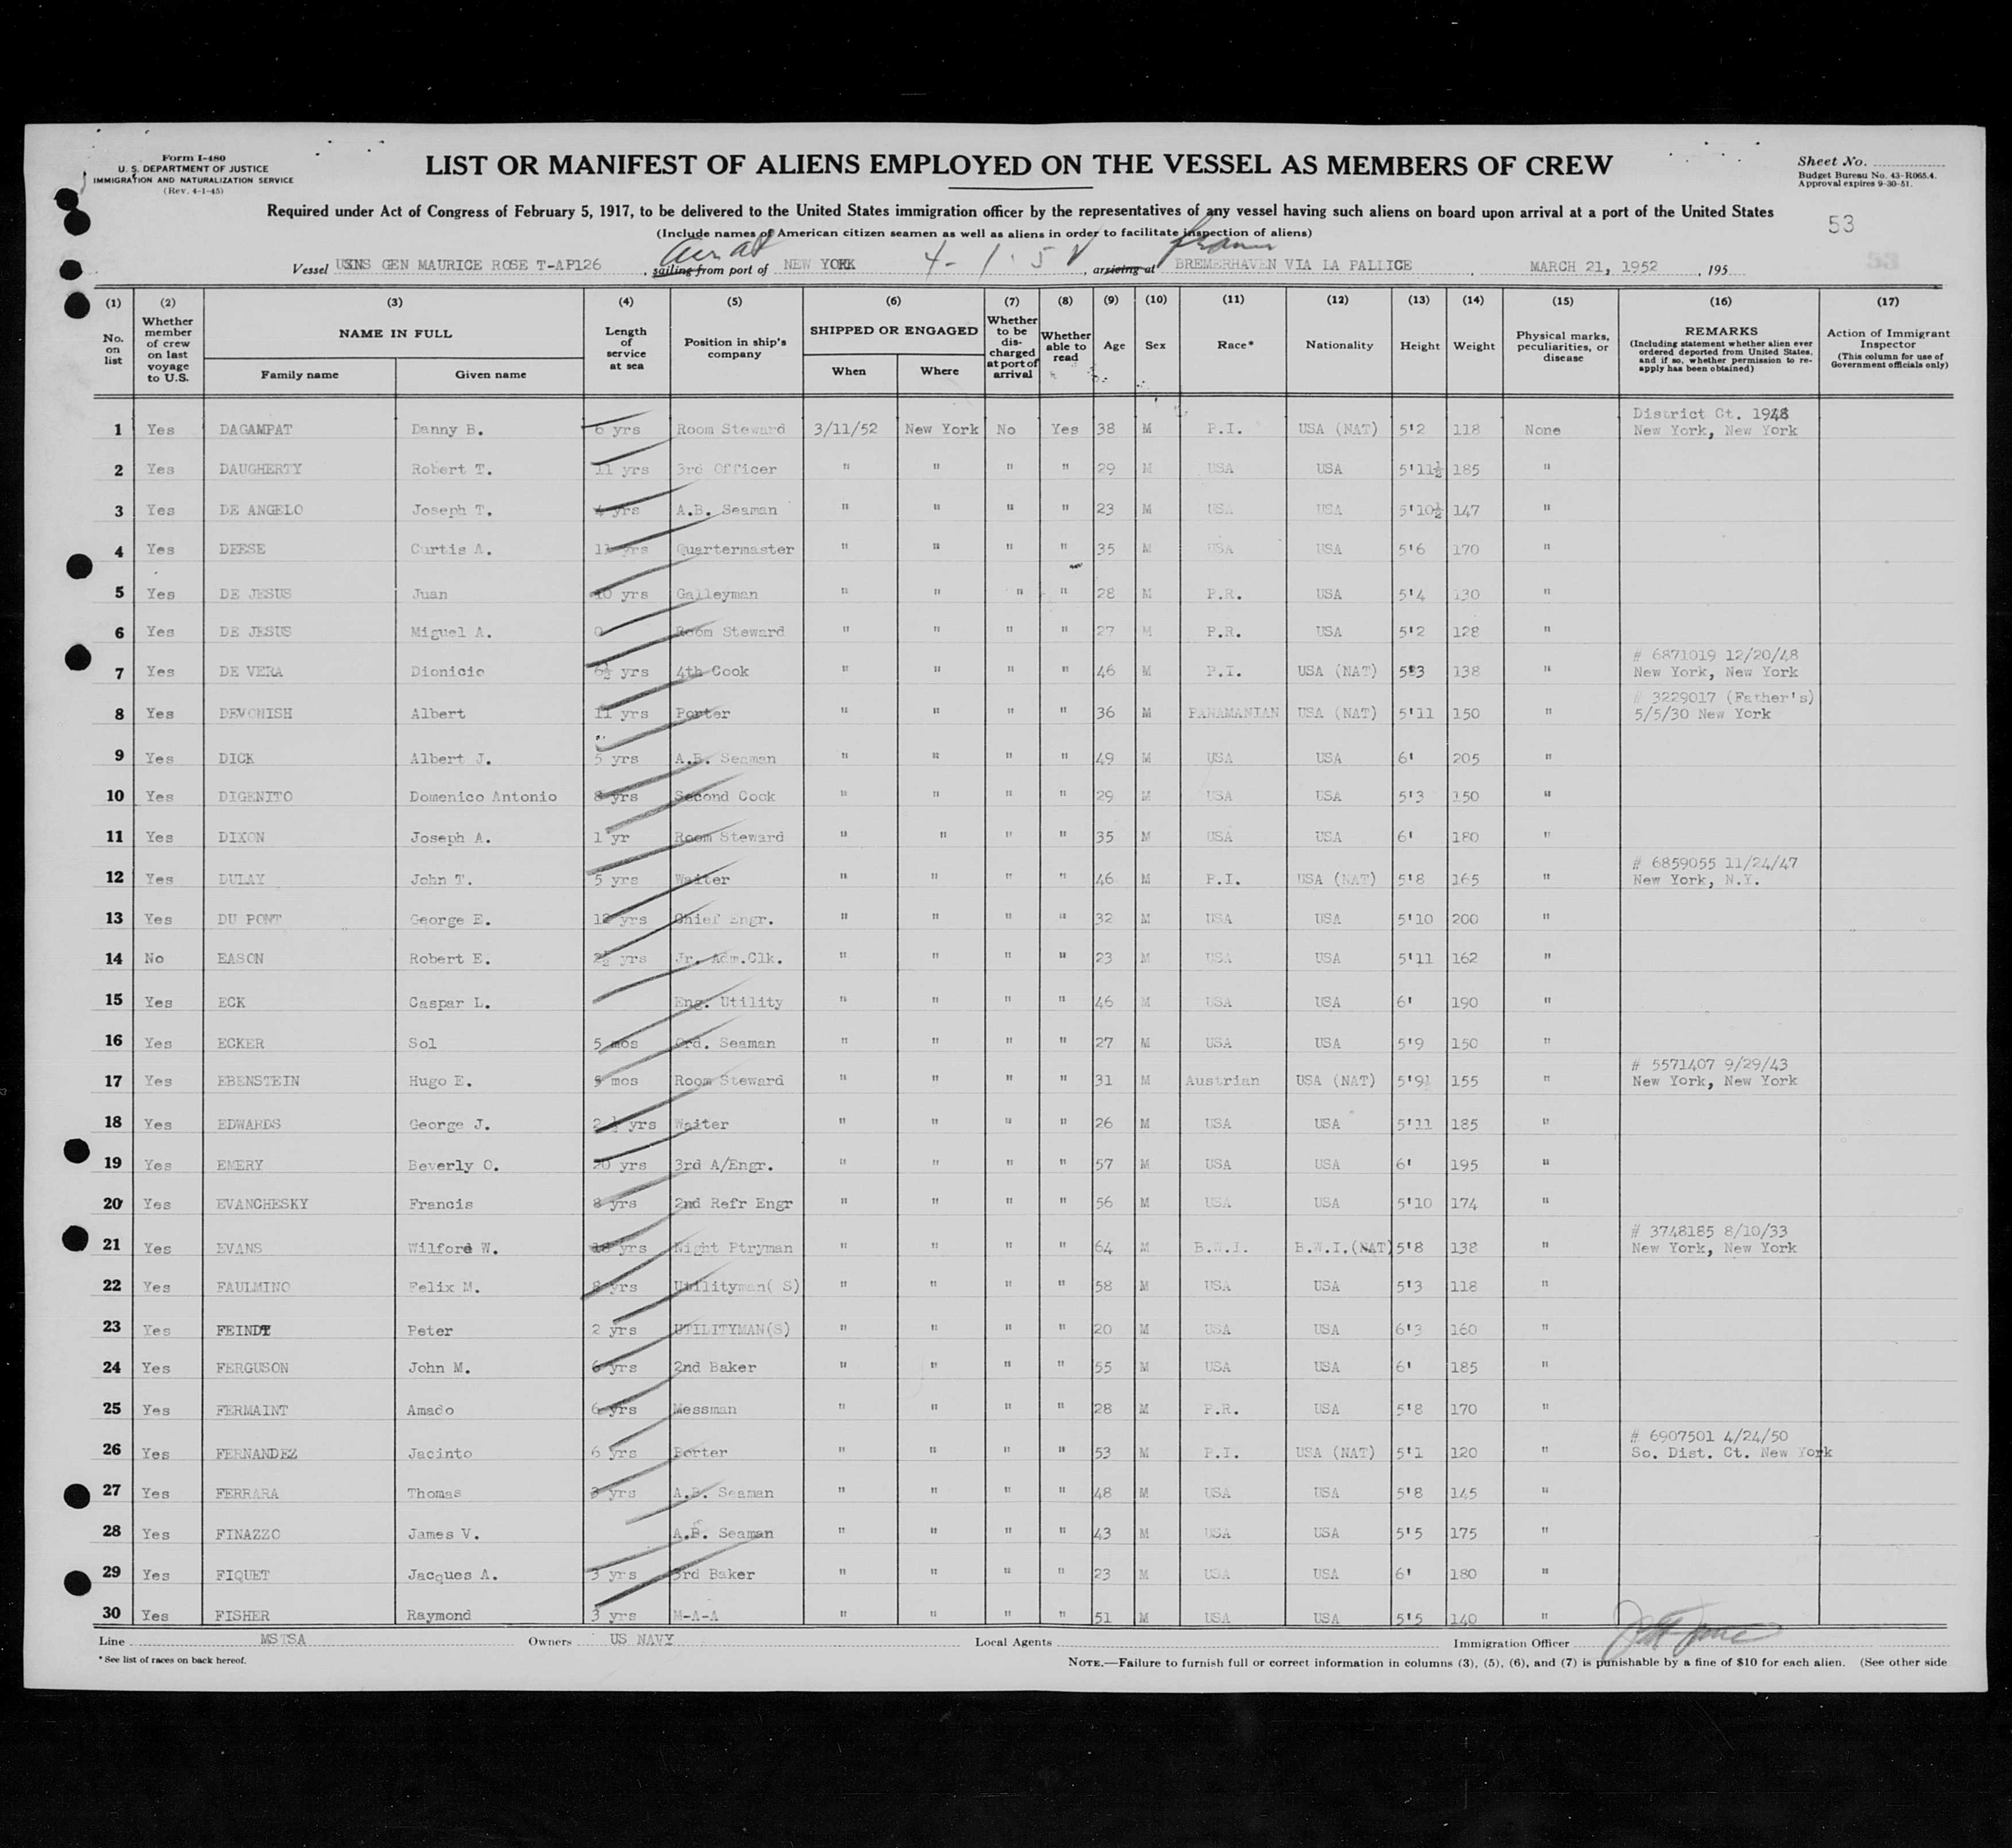 Form I-480
U. S. DEPARTMENT OF JUSTICE
IMMIGRATION AND NATURALIZATION SERVICE
(Rev. 4-1-45)
LIST OR MANIFEST OF ALIENS EMPLOYED ON THE VESSEL AS MEMBERS OF CREW
Sheet No.
Budget Bureau No. 43-R065.4.
Approval expires 9-30-51.
Required under Act of Congress of February 5, 1917, to be delivered to the United States immigration officer by the representatives of any vessel having such aliens on board upon arrival at a port of the United States
53
(Include names of American citizen seamen as well as aliens in order to facilitate inspection of aliens)
Arr at from
Vessel USNS GEN MAURICE ROSE T-AP126, sailing from port of NEW YORK 4-1-52, arriving at BREMERHAVEN VIA LA PALLICE, MARCH 21, 1952, 195
(1) (2) (3) (4) (5) (6) (7) (8) (9) (10) (11) (12) (13) (14) (15) (16) (17)
No. on list Whether member of crew on last voyage to U.S. NAME IN FULL Family name Given name Length of service at sea Position in ship's company SHIPPED OR ENGAGED When Where Whether to be discharged at port of arrival Whether able to read Age Sex Race* Nationality Height Weight Physical marks, peculiarities, or disease REMARKS (Including statement whether alien ever ordered deported from United States, and if so, whether permission to reapply has been obtained) Action of Immigrant Inspector (This column for use of Government officials only)
District Ct. 1948
1 Yes DAGAMPAT Danny B. 6 yrs Room Steward 3/11/52 New York No Yes 38 M P.I. USA (NAT) 5'2 118 None New York, New York
2 Yes DAUGHERTY Robert T. 11 yrs 3rd Officer " " " " 29 M USA USA 5'11½ 185 "
3 Yes DE ANGELO Joseph T. 4 yrs A.B. Seaman " " " " 23 M USA USA 5'10½ 147 "
4 Yes DEESE Curtis A. 11 yrs Quartermaster " " " " 35 M USA USA 5'6 170 "
5 Yes DE JESUS Juan 10 yrs Galleyman " " " " 28 M P.R. USA 5'4 130 "
6 Yes DE JESUS Miguel A. 0 Room Steward " " " " 27 M P.R. USA 5'2 128 "
# 6871019 12/20/48
7 Yes DE VERA Dionicio 6½ yrs 4th Cook " " " " 46 M P.I. USA (NAT) 5'3 138 " New York, New York
# 3229017 (Father's)
8 Yes DEVONISH Albert 11 yrs Porter " " " " 36 M PANAMANIAN USA (NAT) 5'11 150 " 5/5/30 New York
9 Yes DICK Albert J. 5 yrs A.B. Seaman " " " " 49 M USA USA 6' 205 "
10 Yes DIGENITO Domenico Antonio 8 yrs Second Cook " " " " 29 M USA USA 5'3 150 "
11 Yes DIXON Joseph A. 1 yr Room Steward " " " " 35 M USA USA 6' 180 "
# 6859055 11/24/47
12 Yes DULAY John T. 5 yrs Waiter " " " " 46 M P.I. USA (NAT) 5'8 165 " New York, N.Y.
13 Yes DU PONT George E. 12 yrs Chief Engr. " " " " 32 M USA USA 5'10 200 "
14 No EASON Robert E. 2½ yrs Jr. Adm.Clk. " " " " 23 M USA USA 5'11 162 "
15 Yes ECK Caspar L. Eng. Utility " " " " 46 M USA USA 6' 190 "
16 Yes ECKER Sol 5 mos Ord. Seaman " " " " 27 M USA USA 5'9 150 "
# 5571407 9/29/43
17 Yes EBENSTEIN Hugo E. 5 mos Room Steward " " " " 31 M Austrian USA (NAT) 5'9½ 155 " New York, New York
18 Yes EDWARDS George J. 2 ½ yrs Waiter " " " " 26 M USA USA 5'11 185 "
19 Yes EMERY Beverly O. 20 yrs 3rd A/Engr. " " " " 57 M USA USA 6' 195 "
20 Yes EVANCHESKY Francis 8 yrs 2nd Refr Engr " " " " 56 M USA USA 5'10 174 "
# 3748185 8/10/33
21 Yes EVANS Wilford W. 18 yrs Night Ptryman " " " " 64 M B.W.I. B.W.I.(NAT) 5'8 138 " New York, New York
22 Yes FAULMINO Felix M. 8 yrs Utilityman( S) " " " " 58 M USA USA 5'3 118 "
23 Yes FEINDT Peter 2 yrs UTILITYMAN(S) " " " " 20 M USA USA 6'3 160 "
24 Yes FERGUSON John M. 6 yrs 2nd Baker " " " " 55 M USA USA 6' 185 "
25 Yes FERMAINT Amado 6 yrs Messman " " " " 28 M P.R. USA 5'8 170 "
# 6907501 4/24/50
26 Yes FERNANDEZ Jacinto 6 yrs Porter " " " " 53 M P.I. USA (NAT) 5'1 120 " So. Dist. Ct. New York
27 Yes FERRARA Thomas 3 yrs A.B. Seaman " " " " 48 M USA USA 5'8 145 "
28 Yes FINAZZO James V. A.B. Seaman " " " " 43 M USA USA 5'5 175 "
29 Yes FIQUET Jacques A. 3 yrs 3rd Baker " " " " 23 M USA USA 6' 180 "
30 Yes FISHER Raymond 3 yrs M-A-A " " " " 51 M USA USA 5'5 140 "
Line MSTSA Owners US NAVY Local Agents Immigration Officer
* See list of races on back hereof.
NOTE.—Failure to furnish full or correct information in columns (3), (5), (6), and (7) is punishable by a fine of $10 for each alien. (See other side